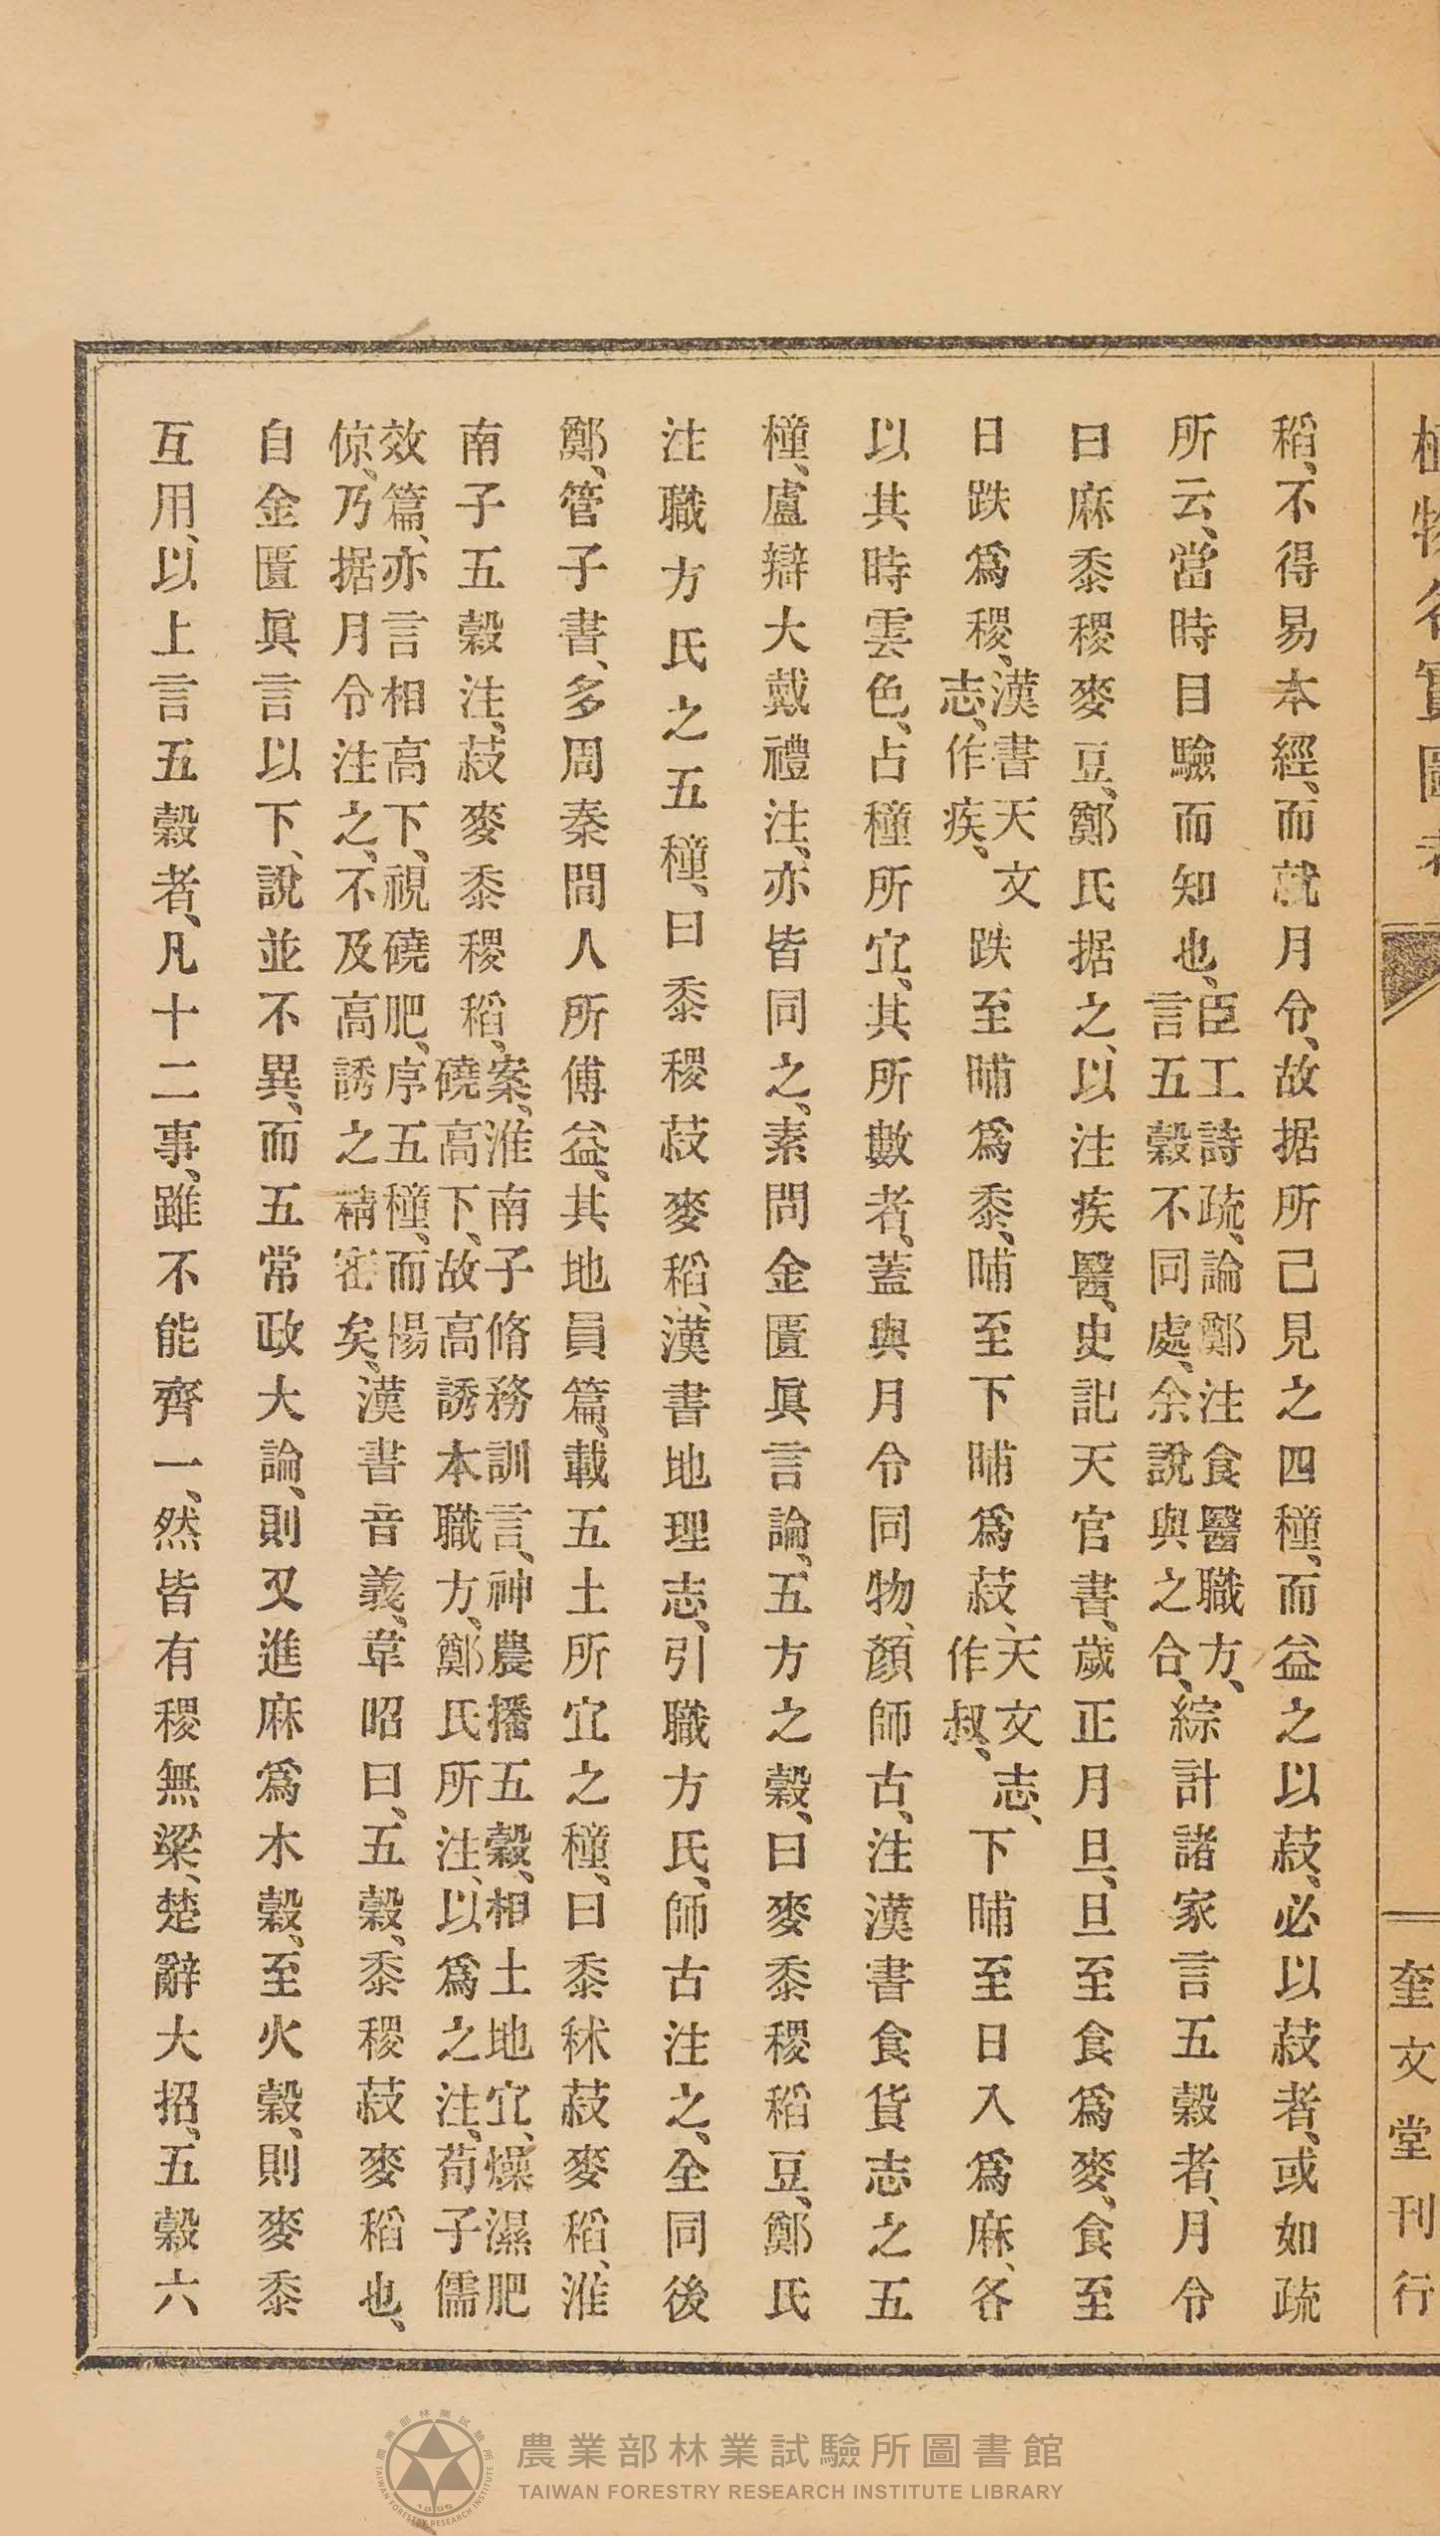 植物名實圖考
奎文堂刊行
稻、不得易本經、而就月令、故据所已見之四穜、而益之以菽、必以菽者、或如疏
所云、當時目驗而知也、臣工詩疏、論鄭注食醫職方、言五穀不同處、余說與之合、綜計諸家言五穀者、月令
曰麻黍稷麥豆、鄭氏据之、以注疾醫、史記天官書、歲正月旦、旦至食爲麥、食至
日跌爲稷、漢書天文志、作疾、跌至晡爲黍、晡至下晡爲菽、天文志、作叔、下晡至日入爲麻、各
以其時雲色、占穜所宜、其所數者、蓋與月令同物、顏師古、注漢書食貨志之五
穜、盧辯大戴禮注、亦皆同之、素問金匱眞言論、五方之穀、曰麥黍稷稻豆、鄭氏
注職方氏之五穜、曰黍稷菽麥稻、漢書地理志、引職方氏、師古注之、全同後
鄭、管子書、多周秦間人所傅益、其地員篇、載五土所宜之穜、曰黍秫菽麥稻、淮
南子五穀注、菽麥黍稷稻、案、淮南子脩務訓言、神農播五穀、相土地宜、燥濕肥磽高下、故高誘本職方、鄭氏所注、以爲之注、荀子儒
效篇、亦言相高下、視磽肥、序五穜、而楊倞、乃据月令注之、不及高誘之精密矣、漢書音義、韋昭曰、五穀、黍稷菽麥稻也、
自金匱眞言以下、說並不異、而五常政大論、則又進麻爲木穀、至火穀、則麥黍
互用、以上言五穀者、凡十二事、雖不能齊一、然皆有稷無粱、楚辭大招、五穀六
農業部林業試驗所圖書館
TAIWAN FORESTRY RESEARCH INSTITUTE LIBRARY